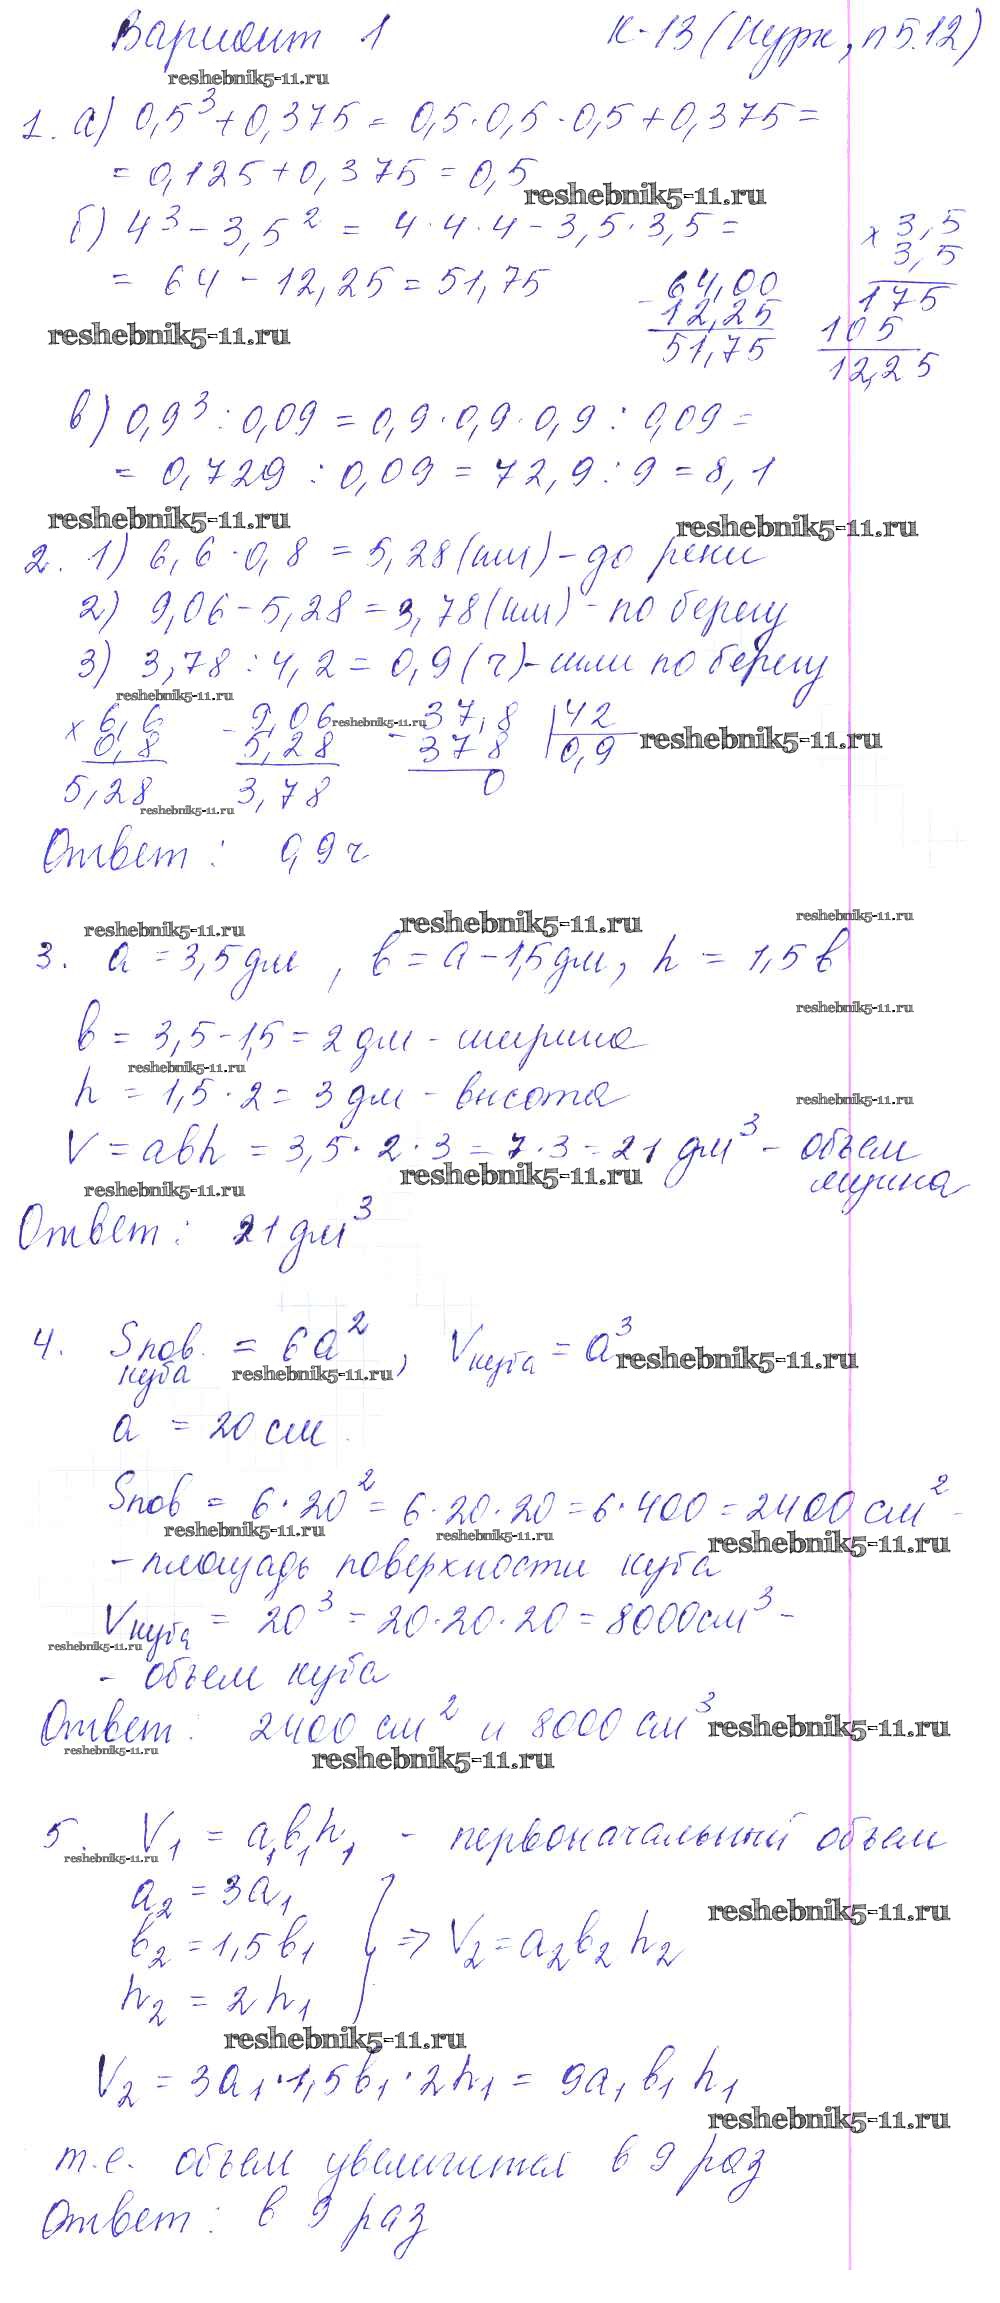 Вариант 1 К-13 (Нурк, п 5.12)
reshebnik5-11.ru
1. а) 0,5³ + 0,375 = 0,5 · 0,5 · 0,5 + 0,375 =
= 0,125 + 0,375 = 0,5
reshebnik5-11.ru
б) 4³ - 3,5² = 4 · 4 · 4 - 3,5 · 3,5 =
= 64 - 12,25 = 51,75
- 64,00
12,25
51,75
× 3,5
3,5
175
105
12,25
reshebnik5-11.ru
в) 0,9³ : 0,09 = 0,9 · 0,9 · 0,9 : 0,09 =
= 0,729 : 0,09 = 72,9 : 9 = 8,1
reshebnik5-11.ru reshebnik5-11.ru
2. 1) 6,6 · 0,8 = 5,28 (км) - до реки
2) 9,06 - 5,28 = 3,78 (км) - по берегу
3) 3,78 : 4,2 = 0,9 (ч) - шли по берегу
reshebnik5-11.ru
× 6,6
0,8
5,28
- 9,06
5,28
3,78
reshebnik5-11.ru
- 37,8 42
378 0,9
0
reshebnik5-11.ru
reshebnik5-11.ru
Ответ: 0,9 ч
reshebnik5-11.ru reshebnik5-11.ru reshebnik5-11.ru
3. a = 3,5 дм, в = a - 1,5 дм, h = 1,5 в
reshebnik5-11.ru
в = 3,5 - 1,5 = 2 дм - ширина
reshebnik5-11.ru
h = 1,5 · 2 = 3 дм - высота
reshebnik5-11.ru
V = aвh = 3,5 · 2 · 3 = 7 · 3 = 21 дм³ - объем
ящика
reshebnik5-11.ru reshebnik5-11.ru
Ответ: 21 дм³
4. Sпов. куба = 6a², Vкуба = a³
reshebnik5-11.ru reshebnik5-11.ru
a = 20 см
Sпов = 6 · 20² = 6 · 20 · 20 = 6 · 400 = 2400 см² -
reshebnik5-11.ru reshebnik5-11.ru reshebnik5-11.ru
- площадь поверхности куба
Vкуба = 20³ = 20 · 20 · 20 = 8000 см³ -
reshebnik5-11.ru
- объем куба
Ответ: 2400 см² и 8000 см³
reshebnik5-11.ru reshebnik5-11.ru reshebnik5-11.ru
5. V₁ = a₁в₁h₁ - первоначальный объем
reshebnik5-11.ru
a₂ = 3a₁
reshebnik5-11.ru
в₂ = 1,5в₁ } => V₂ = a₂в₂h₂
h₂ = 2h₁
reshebnik5-11.ru
V₂ = 3a₁ · 1,5в₁ · 2h₁ = 9a₁в₁h₁
reshebnik5-11.ru
т.е. объем увеличится в 9 раз
Ответ: в 9 раз